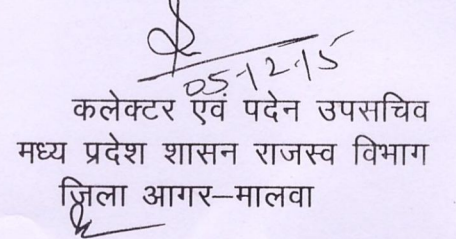 05-12-15
कलेक्टर एवं पदेन उपसचिव
मध्य प्रदेश शासन राजस्व विभाग
ज़िला आगर–मालवा